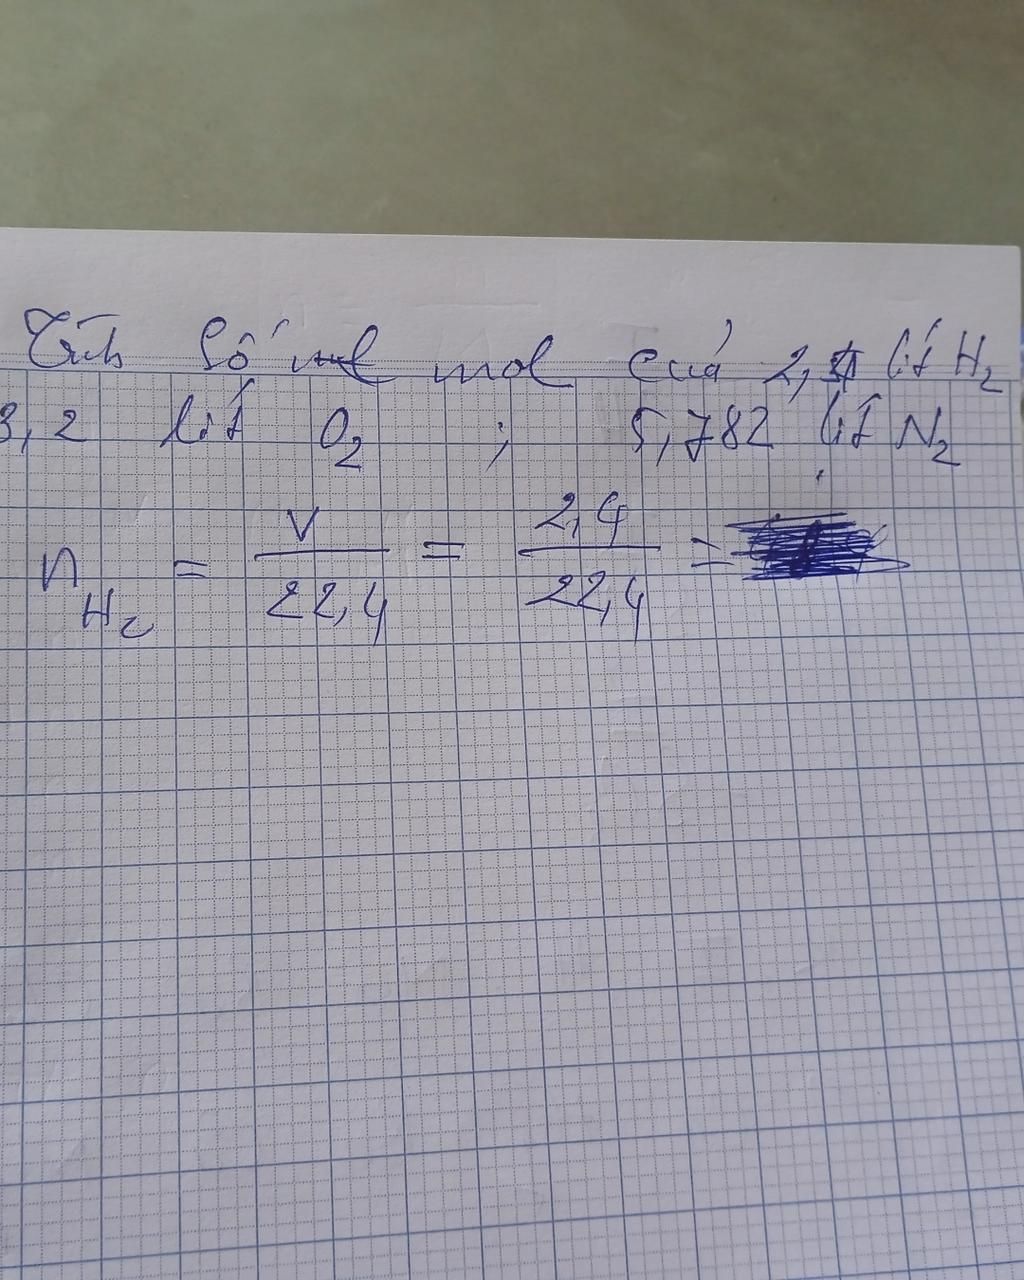 Tính số mol của 2,4 lít H₂
3,2 lít O₂ ; 5,782 lít N₂
n H₂ = V/22,4 = 2,4/22,4 =